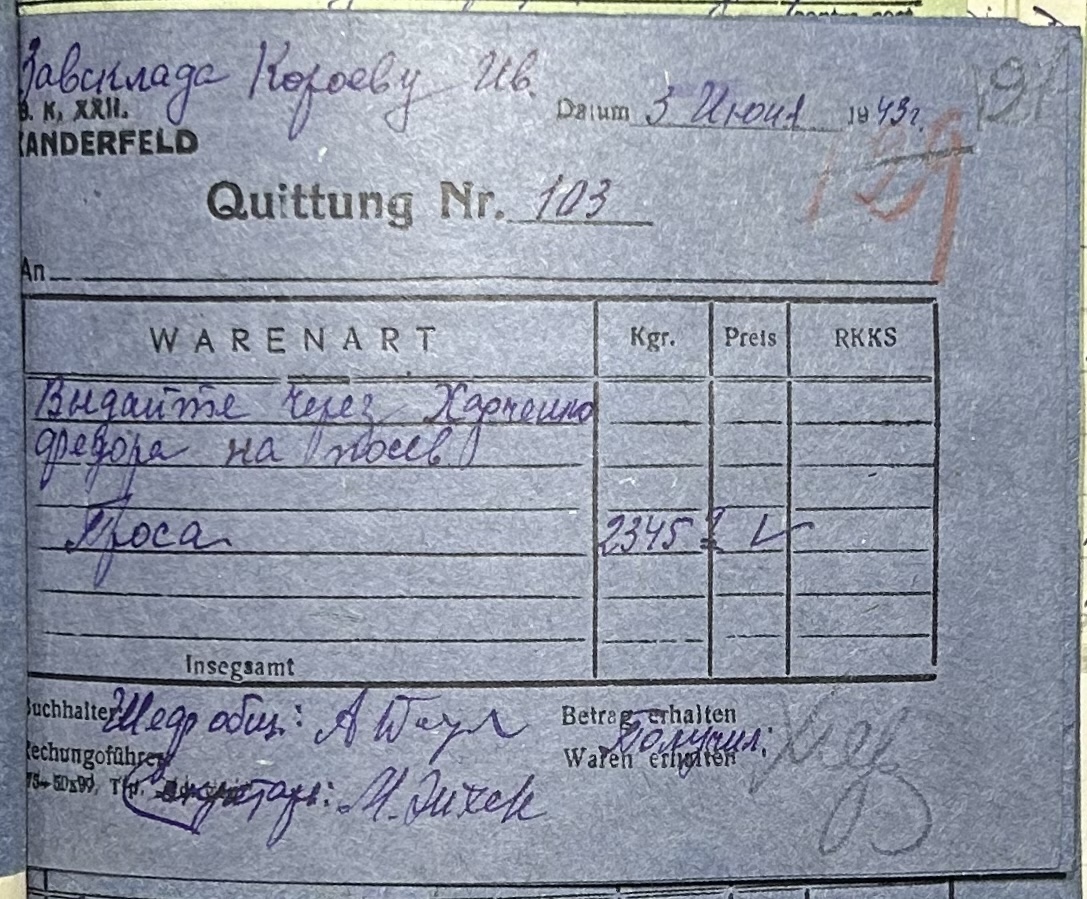 Завсклада Короеву Ив.
В. К, XXII.
KANDERFELD
Datum 3 Июня 1943г.
129
Quittung Nr. 103
An
WARENART Kgr. Preis RKKS
Выдайте через Харченко
Федора на посев
Проса 2345
Insegsamt
Buchhalter общ: А
Betrag erhalten
Rechungoführer Получил:
Waren erhalten
75-50x99, Тип. Секретарь: М.